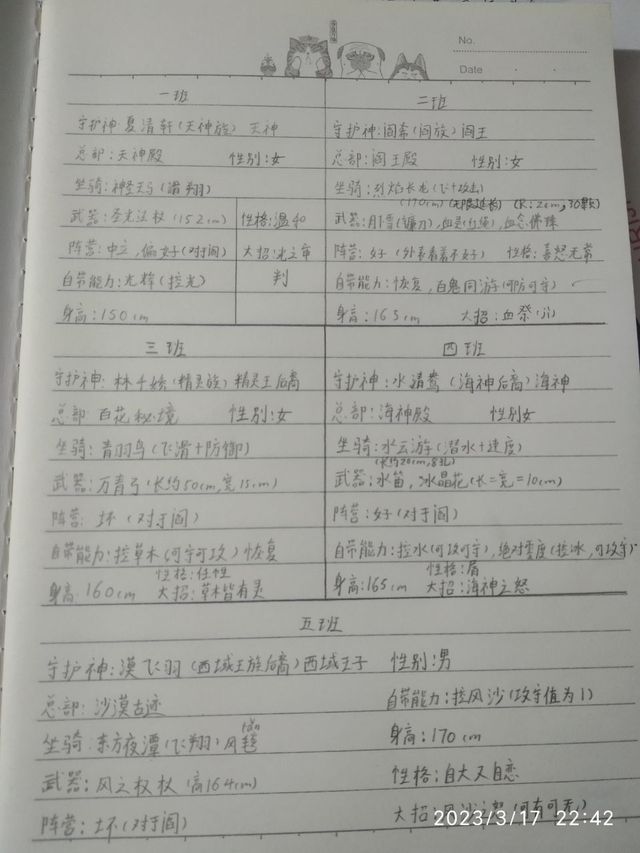 No.
Date
一班
守护神:夏清轩(天神族) 天神
总部:天神殿 性别:女
坐骑:神圣天马(滑翔)
武器:圣光法杖(152cm) 性格:温和
阵营:中立,偏好(对于阎) 大招:光之审
自带能力:光辉(控光) 判
身高:150cm
二班
守护神:阎希(阎族)阎王
总部:阎王殿 性别:女
坐骑:烈焰长龙(飞+攻击)
(170cm)(无限延长) (长:2cm,30颗)
武器:月雪(镰刀),血灵(红绳),血念佛珠
阵营:好(外表看着不好) 性格:喜怒无常
自带能力:恢复,百鬼同游(可防可守)
身高:165cm 大招:血祭
三班
守护神:林千娇(精灵族)精灵王后裔
总部:百花秘境 性别:女
坐骑:青羽鸟(飞滑+防御)
武器:万青弓(长约50cm,宽15cm)
阵营:坏(对于阎)
自带能力:控草木(可守可攻)恢复
性格:任性
身高:160cm 大招:草木皆有灵
四班
守护神:水清鸯(海神后裔)海神
总部:海神殿 性别女
坐骑:水云游(潜水+速度)
(长约20cm,8孔)
武器:水笛,冰晶花(长=宽=10cm)
阵营:好(对于阎)
自带能力:控水(可攻可守),绝对零度(控冰,可攻守)
性格:盾
身高:165cm 大招:海神之怒
五班
守护神:漠飞羽(西域王族后裔)西域王子 性别:男
总部:沙漠古迹 自带能力:控风沙(攻守值为1)
坐骑:东方夜潭(飞翔)风毯 身高:170cm
tǎn
武器:风之权杖(高164cm) 性格:自大又自恋
阵营:坏(对于阎) 大招:风沙之怒(可有可无)
2023/3/17 22:42